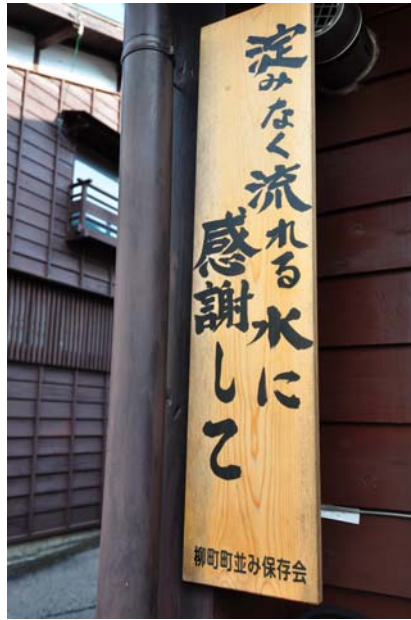 淀みなく流れる水に
感謝して
柳町町並み保存会